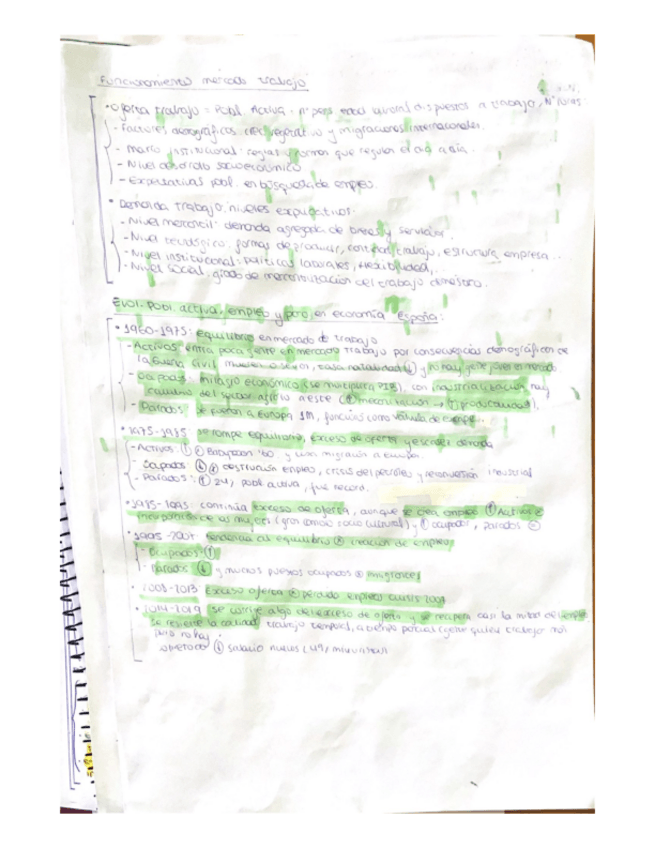 Funcionamiento mercado trabajo
• Oferta trabajo = Pobl. Activa · nº pers. edad laboral dispuestos a trabajo, Nº horas
- Factores demográficos: crec. vegetativo y migraciones internacionales.
- Marco institucional: reglas y normas que regulen el día a día.
- Nivel desarrollo socioeconómico
- Expectativas pobl. en búsqueda de empleo.
• Demanda trabajo: niveles explicativos.
- Nivel mercantil: demanda agregada de bienes y servicios.
- Nivel tecnológico, formas de producir, trabajo, estructura empresa...
- Nivel institucional: Políticas laborales, flexibilidad,
- Nivel social, grado de mercantilización del trabajo doméstico.
Evol. pobl. activa, empleo y paro, en economía España:
• 1960-1975: Equilibrio en mercado de trabajo
- Activos: entra poca gente en mercado trabajo por consecuencias demográficas de
la Guerra Civil, tasa natalidad ↓ y no hay gente joven en mercado
- Ocupados: milagro económico (se multiplica PIB), con industrialización hay
del sector agrario a este (↑ mecanización → ↑ productividad).
- Parados: se fueron a Europa 1M, funcionó como válvula de escape.
• 1975-1985: se rompe equilibrio, exceso de oferta y escasez demanda
- Activos: ↑ Babyboom '60 y migración a Europa.
- Ocupados: ↓ destrucción empleo, crisis del petróleo y reconversión industrial
- Parados: ↑ pobl. activa, fue record.
• 1985-1995: continúa exceso de oferta, aunque se crea empleo ↑ Activos
incorporación de las mujeres (gran cambio socio cultural) y ↑ ocupados, parados
• 1995-2007: tendencia al equilibrio creación de empleo
- Ocupados: ↑
- Parados ↓ y muchos puestos ocupados inmigrantes
• 2008-2013 Exceso oferta pérdida empleo crisis
• 2014-2019 se corrige algo del exceso de oferta y se recupera casi la mitad del empleo
se resiente la calidad: trabajo temporal, a tiempo parcial (gente quiere trabajar más
pero no hay
↓ salario nuevos